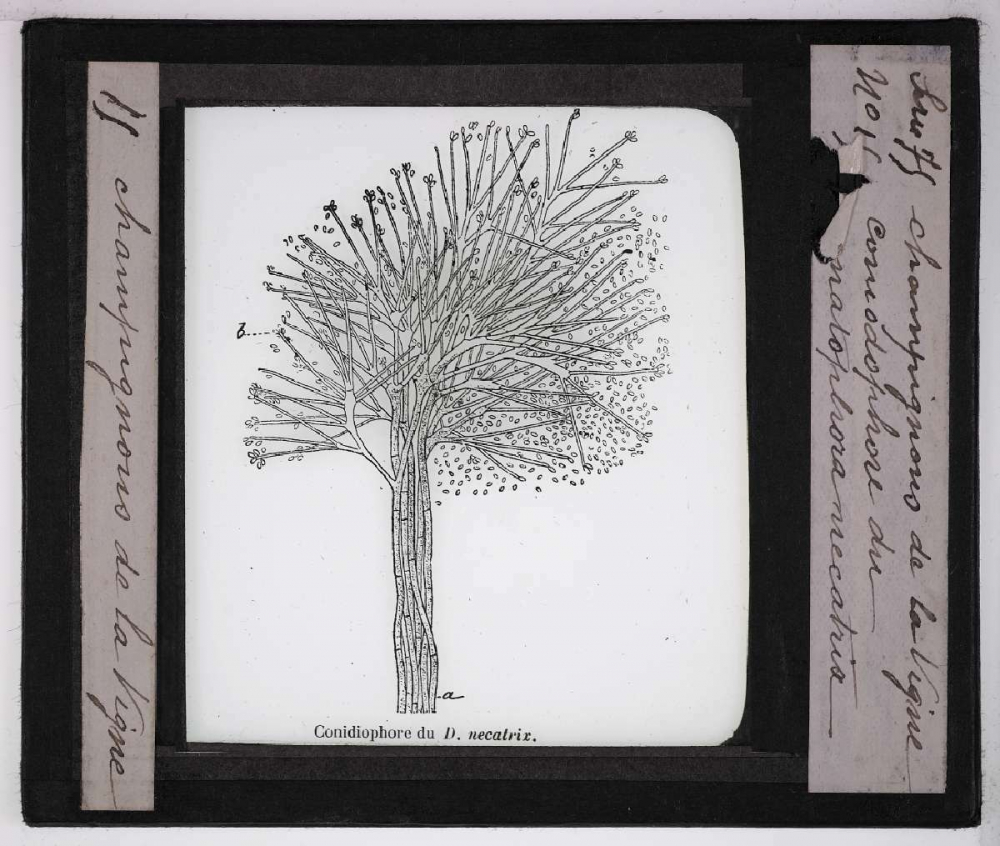 75 champignons de la Vigne
b
a
Conidiophore du D. necatrix.
75 champignons de la Vigne
No 15 conidophore du
matophora necatrix